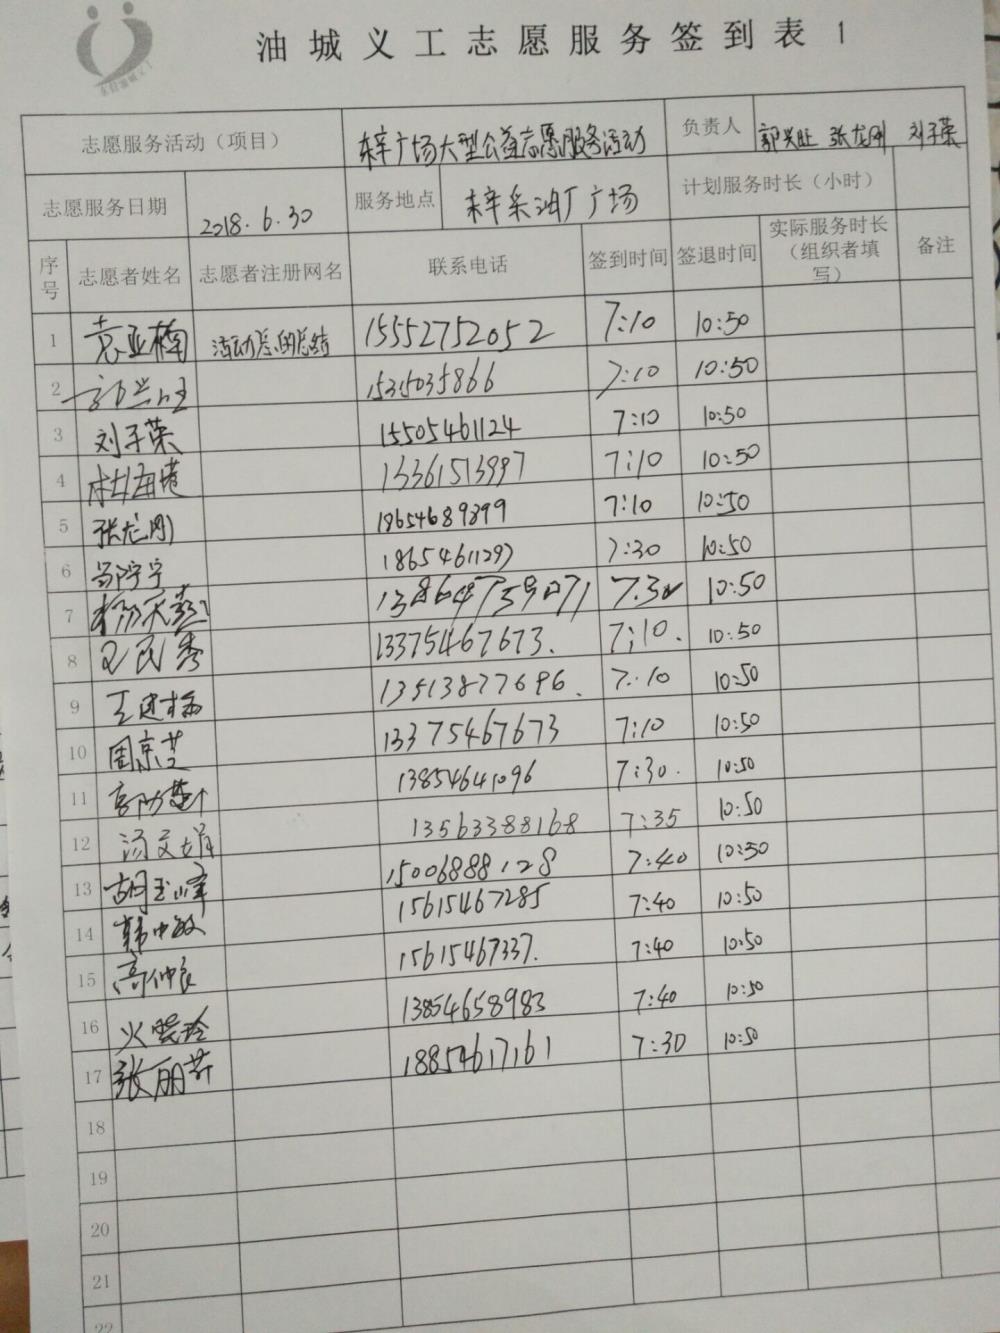 油城义工志愿服务签到表 1
志愿服务活动（项目） 东辛广场大型公益志愿服务活动 负责人 郭兴旺 张龙刚 刘子荣
志愿服务日期 2018.6.30 服务地点 东辛采油厂广场 计划服务时长（小时）
序号 志愿者姓名 志愿者注册网名 联系电话 签到时间 签退时间 实际服务时长（组织者填写） 备注
1 袁亚楠 活动总的总结 15552752052 7:10 10:50
2 郭兴旺 15315035866 7:10 10:50
3 刘子荣 15505461124 7:10 10:50
4 13361513997 7:10 10:50
5 张龙刚 18654689899 7:10 10:50
6 18654611297 7:30 10:50
7 13864759071 7.30 10:50
8 王民秀 13375467673. 7:10. 10:50
9 王建梅 13513877696. 7:10 10:50
10 周京芝 13375467673 7:10 10:50
11 13854641096 7:30. 10:50
12 汤文娟 13563388168 7:35 10:50
13 胡玉峰 15006888128 7:40 10:50
14 韩中敏 15615467285 7:40 10:50
15 高仲良 15615467337. 7:40 10:50
16 火晓玲 13854658983 7:40 10:50
17 张丽芹 18854617161 7:30 10:50
18
19
20
21
22